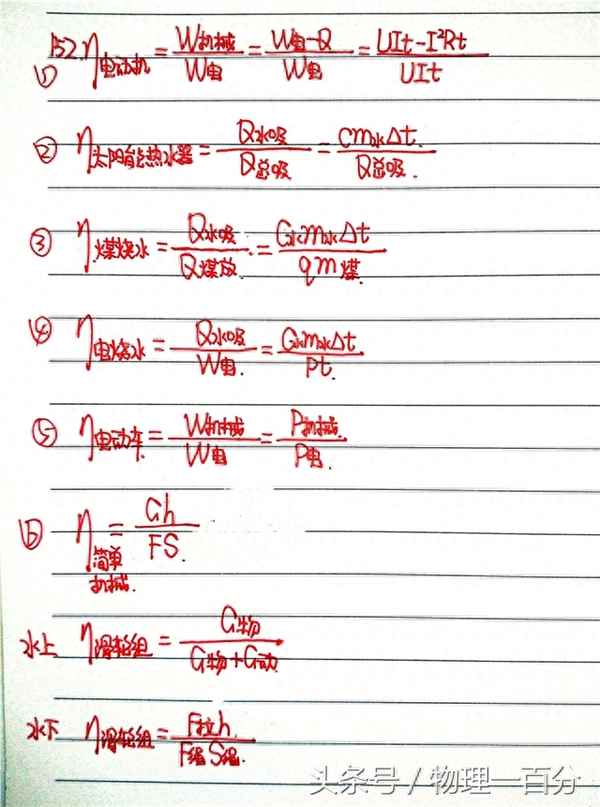 152.
① η电动机 = W机械/W电 = (W电-Q)/W电 = (UIt-I²Rt)/UIt
② η太阳能热水器 = Q水吸/Q总吸 = Cm水Δt/Q总吸.
③ η煤烧水 = Q水吸/Q煤放 = C水m水Δt/qm煤
④ η电烧水 = Q水吸/W电. = C水m水Δt/Pt.
⑤ η电动车 = W机械/W电 = P机械/P电.
⑥ η简单机械. = Gh/FS.
水上 η滑轮组 = G物/(G物+G动)
水下 η滑轮组 = F拉h/F绳S绳.
头条号/物理一百分